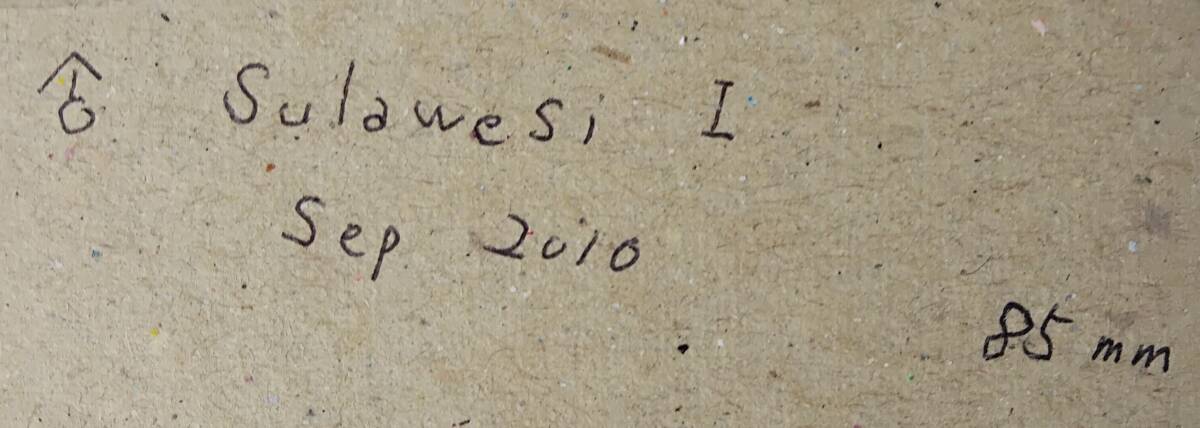 ♂ Sulawesi I
Sep 2010
85 mm